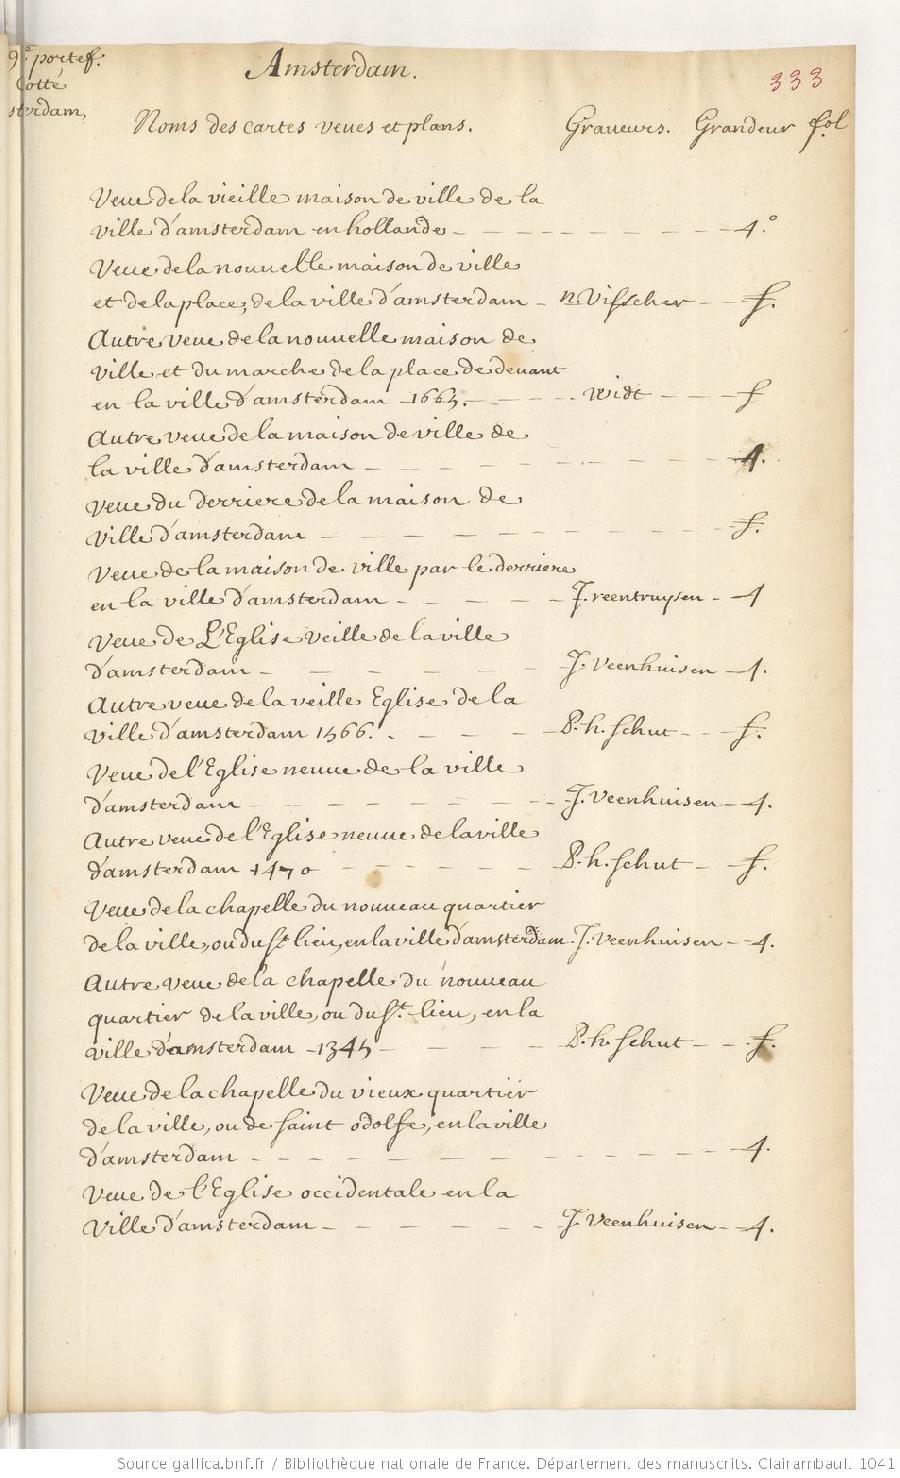 9.e portef.
Cotté
sterdam,
Amsterdam.
333
Noms des cartes veues et plans. Graueurs. Grandeur fol
Veue de la vieille maison de ville de la
ville d'amsterdam en hollande - 4.º
Veue de la nouuelle maison de ville
et de la place, de la ville d'amsterdam - n Visscher - f.
Autre veue de la nouuelle maison de
ville et du marche de la place de deuant
en la ville d'amsterdam - 1665. - Widt - f
Autre veue de la maison de ville de
la ville d'amsterdam - 4.
Veue du derriere de la maison de
ville d'amsterdam - f.
Veue de la maison de ville par le derriere
en la ville d'amsterdam - J. veentruysen - 4
Veue de L'Eglise veille de la ville
d'amsterdam - J. Veenhuisen - 4.
Autre veue de la veille Eglise de la
ville d'amsterdam 1566. - P. h. schut - f.
Veue de l'Eglise neuue de la ville
d'amsterdam - J. Veenhuisen - 4.
Autre veue de l'Eglise neuue de la ville
d'amsterdam 1470 - P. h. schut - f.
Veue de la chapelle du nouueau quartier
de la ville, ou du st. lieu, en la ville d'amsterdam. J. Veenhuisen - 4.
Autre veue de la chapelle du nouueau
quartier de la ville, ou du st. lieu, en la
ville d'amsterdam - 1345 - P. h. schut - f.
Veue de la chapelle du vieux quartier
de la ville, ou de saint odolfe, en la ville
d'amsterdam - 4.
Veue de l'Eglise occidentale en la
ville d'amsterdam - J. Veenhuisen - 4.
Source gallica.bnf.fr / Bibliothèque nationale de France. Département des manuscrits. Clairambaul. 1041